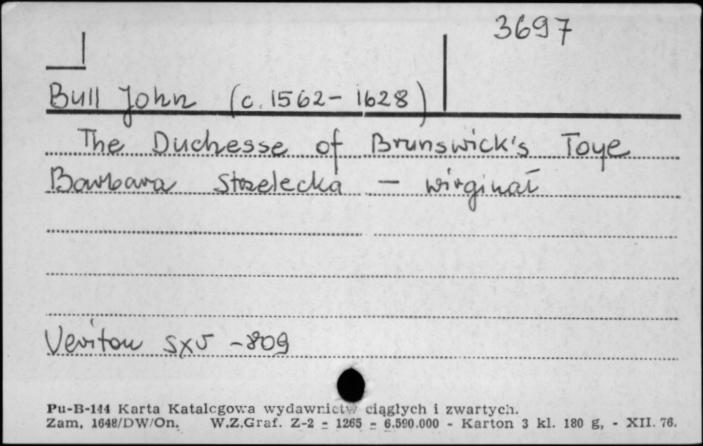 3697
Bull John (c. 1562 - 1628)
The Duchesse of Brunswick's Toye
Barbara Strzelecka - wirginał
Veriton SXV - 809
Pu-B-144 Karta Katalogowa wydawnictw ciągłych i zwartych.
Zam. 1648/DW/On. W.Z.Graf. Z-2 - 1265 - 6.590.000 - Karton 3 kl. 180 g, - XII. 76.